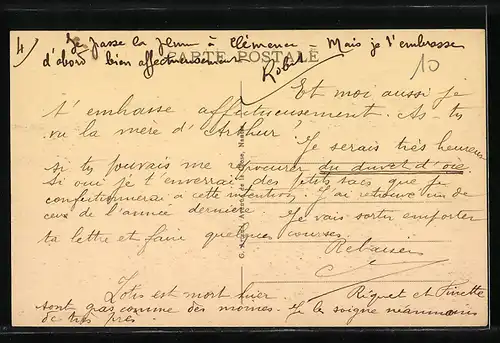 4/ Je passe la plume à Clémence – Mais je t'embrasse
d'abord bien affectueusement
CARTE POSTALE
Robert
10
Et moi aussi je
t'embrasse affectueusement. As-tu
vu la mère d'Arthur? Je serais très heureuse
si tu pouvais me procurer du duvet d'oie.
Si oui je t'enverrai des petits sacs que je
confectionnerai à cette intention. J'ai retrouvé un de
ceux de l'année dernière. Je vais sortir emporter
ta lettre et faire quelques courses.
Rebaisers
C
Lotis est mort hier Riquet et Finette
sont gras comme des moines. Je le soigne néanmoins
de très près.